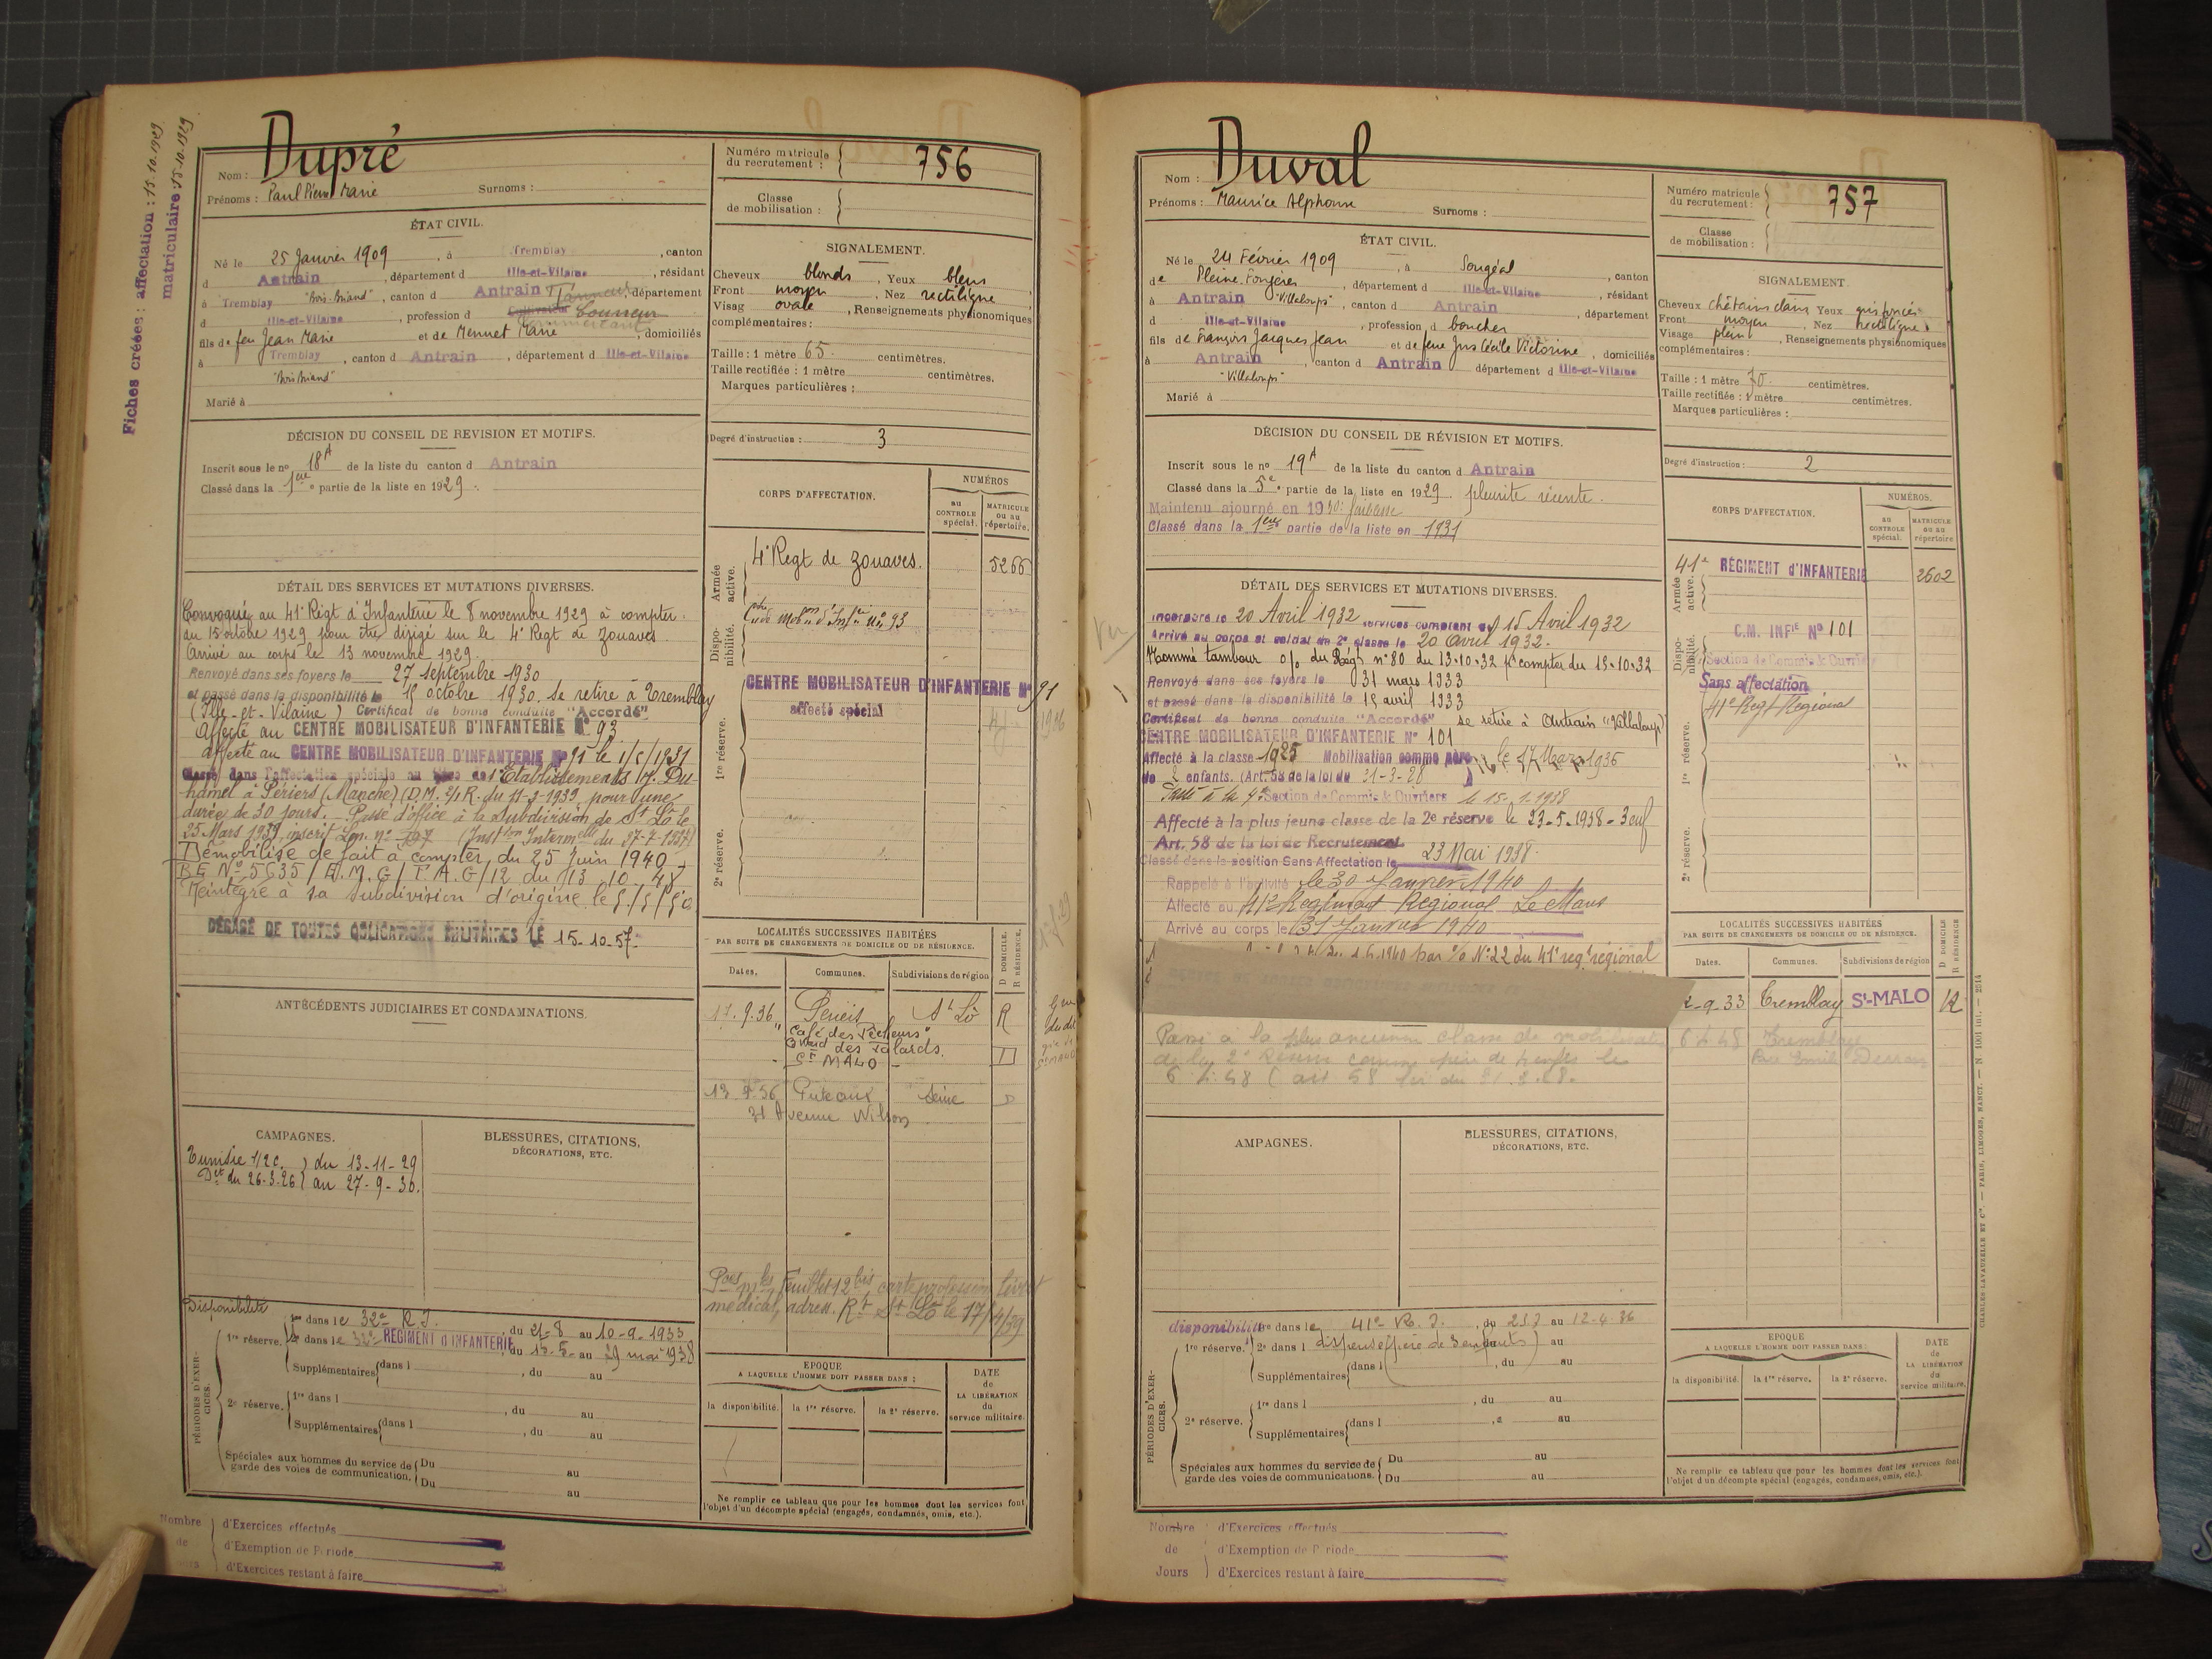 Fiches créées : affectation : 15.10.1929
matriculaire : 15.10.1929
Nom : Dupré
Prénoms : Paul Pierre Marie Surnoms :
Numéro matricule du recrutement : 756
Classe de mobilisation :
ÉTAT CIVIL.
Né le 25 Janvier 1909, à Tremblay, canton
d Antrain, département d Ille-et-Vilaine, résidant
à Tremblay "Bois-Briand", canton d Antrain, département
d Ille-et-Vilaine, profession d Cultivateur
fils de feu Jean Marie et de Mennet Marie, domiciliés
à Tremblay, canton d Antrain, département d Ille-et-Vilaine
"Bois Briand"
Marié à
SIGNALEMENT.
Cheveux blonds, Yeux bleus
Front moyen, Nez rectiligne
Visag ovale, Renseignements physionomiques
complémentaires :
Taille : 1 mètre 65 centimètres.
Taille rectifiée : 1 mètre centimètres.
Marques particulières :
Degré d'instruction : 3
DÉCISION DU CONSEIL DE REVISION ET MOTIFS.
Inscrit sous le nº 18A de la liste du canton d Antrain
Classé dans la 1ère partie de la liste en 1929.
CORPS D'AFFECTATION.
NUMÉROS
au CONTROLE spécial.
MATRICULE ou au répertoire.
Armée active.
4e Regt de Zouaves. 5266
Disponibilité.
Ctre de Mob on d'Inf ie nº 93
1re réserve.
CENTRE MOBILISATEUR D'INFANTERIE Nº 91
affecté spécial
2e réserve.
DÉTAIL DES SERVICES ET MUTATIONS DIVERSES.
Convoqué au 41e Régt d'Infanterie le 8 novembre 1929 à compter
du 15 octobre 1929 pour être dirigé sur le 4e Regt de Zouaves.
Arrivé au corps le 13 novembre 1929.
Renvoyé dans ses foyers le 27 septembre 1930
et passé dans la disponibilité le 15 octobre 1930. Se retire à Tremblay
(Ille-et-Vilaine) Certificat de bonne conduite "Accordé"
Affecté au CENTRE MOBILISATEUR D'INFANTERIE Nº 93
affecté au CENTRE MOBILISATEUR D'INFANTERIE Nº 91 le 1/5/1931
Classé dans l'affectation spéciale au titre de l'Etablissements J. Du-
hamel à Périers (Manche) (D.M. 2/1 R. du 11-3-1939 pour une
durée de 30 jours. Passé d'office à la Subdivision de St Lô le
25 Mars 1939
Démobilisé de fait à compter du 25 Juin 1940
B.E. Nº 5635/E.M.G/F.A.G/12 du 13.10.45
Réintégré à sa subdivision d'origine le 5/5/50
DÉGAGÉ DE TOUTES OBLIGATIONS MILITAIRES LE 15-10-57.
LOCALITÉS SUCCESSIVES HABITÉES
PAR SUITE DE CHANGEMENTS DE DOMICILE OU DE RÉSIDENCE.
D DOMICILE. R RÉSIDENCE.
Dates. Communes. Subdivisions de région
17.9.36 Periers St Lô R
"Café des Pêcheurs"
Bd des Talards.
- St MALO - D
13 56 Puteaux Seine D
31 Avenue Wilson
ANTÉCÉDENTS JUDICIAIRES ET CONDAMNATIONS.
CAMPAGNES.
Tunisie 1/2 c. ) du 13-11-29
Det du 26.3.26 ) au 27-9-30.
BLESSURES, CITATIONS, DÉCORATIONS, ETC.
feuillet 12 bis carte profession livret
médical, adress. Rt St Lô le 17/4/39
PÉRIODES D'EXERCICES.
Disponibilité
1re dans le 32e R.I., du 21-8 au 10-9-1933
1re réserve. 2e dans le 32e REGIMENT D'INFANTERIE, du 15-5 au 29 mai 1938
Supplémentaires dans l , du au
2e réserve. 1re dans l , du au
Supplémentaires dans l , du au
Spéciales aux hommes du service de garde des voies de communication. Du au
Du au
EPOQUE
A LAQUELLE L'HOMME DOIT PASSER DANS :
la disponibilité. la 1re réserve. la 2e réserve.
DATE de LA LIBÉRATION du service militaire.
Ne remplir ce tableau que pour les hommes dont les services font
l'objet d'un décompte spécial (engagés, condamnés, omis, etc.).
Nombre de Jours
d'Exercices effectués
d'Exemption de Période
d'Exercices restant à faire
Nom : Duval
Prénoms : Maurice Alphonse Surnoms :
Numéro matricule du recrutement : 757
Classe de mobilisation :
ÉTAT CIVIL.
Né le 24 Février 1909, à Sougéal, canton
de Pleine Fougères, département d Ille-et-Vilaine, résidant
à Antrain "Villaloup", canton d Antrain, département
d Ille-et-Vilaine, profession d boucher
fils de François Jacques Jean et de feue Jus Cécile Victorine, domiciliés
à Antrain, canton d Antrain département d Ille-et-Vilaine
"Villaloup"
Marié à
SIGNALEMENT.
Cheveux châtains clairs Yeux gris foncés
Front moyen, Nez rectiligne
Visage plein, Renseignements physionomiques
complémentaires :
Taille : 1 mètre 70 centimètres.
Taille rectifiée : 1 mètre centimètres.
Marques particulières :
Degré d'instruction : 2
DÉCISION DU CONSEIL DE RÉVISION ET MOTIFS.
Inscrit sous le nº 19A de la liste du canton d Antrain
Classé dans la 5e partie de la liste en 1929 pleurite récente.
Maintenu ajourné en 1930: faiblesse
Classé dans la 1ère partie de la liste en 1931
CORPS D'AFFECTATION.
NUMÉROS.
au CONTROLE spécial.
MATRICULE ou au répertoire
Armée active.
41e RÉGIMENT d'INFANTERIE 2602
Disponibilité.
C.M. INFIE Nº 101
Section de Commis & Ouvriers
Sans affectation
41e Regt Régional
1re réserve.
2e réserve.
DÉTAIL DES SERVICES ET MUTATIONS DIVERSES.
Incorporé le 20 Avril 1932 services comptent du 15 Avril 1932
Arrivé au corps et soldat de 2e classe le 20 avril 1932.
Nommé tambour o/o du Régt nº 80 du 13-10-32 p. compter du 15-10-32
Renvoyé dans ses foyers le 31 mars 1933
et passé dans la disponibilité le 15 avril 1933
Certificat de bonne conduite "Accordé" se retire à Antrain "Villaloup"
CENTRE MOBILISATEUR D'INFANTERIE Nº 101
Affecté à la classe 1925 Mobilisation comme père le 17 Mars 1936
de 2 enfants. (Art. 58 de la loi du 31-3-28
Passé à la 4e Section de Commis & Ouvriers le 15-1-1938
Affecté à la plus jeune classe de la 2e réserve le 23-5-1938 - 3 enf
Art. 58 de la loi de Recrutement
Classé dans la position Sans Affectation le 23 Mai 1938
Rappelé à l'activité le 30 Janvier 1940
Affecté au 41e Régiment Régional Le Mans
Arrivé au corps le 31 Janvier 1940
1940 par o/o Nº 22 du 41e regt régional
Passé à la plus ancienne classe de mobilisation
de la 2e Réserve comme père de 4 enfts le
6.4.48 (art 58 loi du 31.3.28.
LOCALITÉS SUCCESSIVES HABITÉES
PAR SUITE DE CHANGEMENTS DE DOMICILE OU DE RÉSIDENCE.
D DOMICILE R RÉSIDENCE
Dates. Communes. Subdivisions de région
2-9.33 Tremblay St-MALO R
6 4 48 Tremblay
AMPAGNES.
BLESSURES, CITATIONS, DÉCORATIONS, ETC.
PÉRIODES D'EXERCICES.
disponibilité 1re dans le 41e R.I., du 23.3 au 12-4-36
1re réserve. 2e dans l dispensé (père de 3 enfants) au
Supplémentaires dans l , du au
2e réserve. 1re dans l , du au
Supplémentaires dans l , au
Spéciales aux hommes du service de garde des voies de communications. Du au
Du au
EPOQUE
A LAQUELLE L'HOMME DOIT PASSER DANS :
la disponibilité. la 1re réserve. la 2e réserve.
DATE de LA LIBÉRATION du service militaire.
Ne remplir ce tableau que pour les hommes dont les services font
l'objet d'un décompte spécial (engagés, condamnés, omis, etc.).
CHARLES-LAVAUZELLE ET Cie. — PARIS, LIMOGES, NANCY.
Nombre de Jours
d'Exercices effectués
d'Exemption de Période
d'Exercices restant à faire